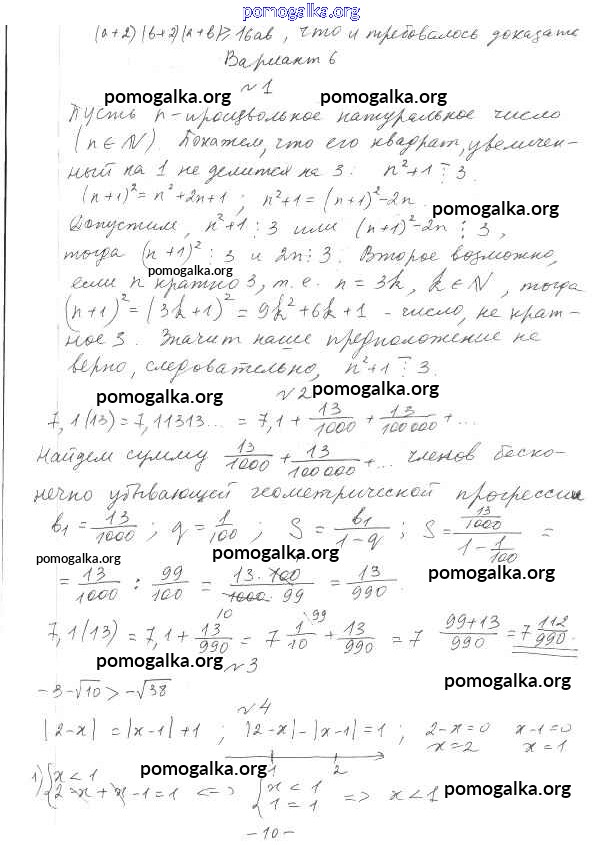 pomogalka.org
(a+2)(b+2)(a+b)≥16ab, что и требовалось доказать
Вариант 6
№1
pomogalka.org pomogalka.org
Пусть n-произвольное натуральное число
(n∈N). Покажем, что его квадрат, увеличен-
ный на 1 не делится на 3. n²+1 ⋮̅ 3.
(n+1)²=n²+2n+1; n²+1=(n+1)²-2n.
pomogalka.org
Допустим, n²+1⋮3 или (n+1)²-2n⋮3,
тогда (n+1)²⋮3 и 2n⋮3. Второе возможно,
pomogalka.org
если n кратно 3, т.е. n=3k, k∈N, тогда
(n+1)²=(3k+1)²=9k²+6k+1 - число, не крат-
ное 3. Значит наше предположение не
верно, следовательно, n²+1 ⋮̅ 3.
№2
pomogalka.org pomogalka.org
7,1(13)=7,11313...=7,1+13/1000+13/100000+...
Найдем сумму 13/1000+13/100000+... членов беско-
нечно убывающей геометрической прогрессии
b₁=13/1000; q=1/100; S=b₁/(1-q); S=(13/1000)/(1-1/100)=
pomogalka.org pomogalka.org pomogalka.org
=13/1000:99/100=13·100/1000·99=13/990.
10
7,1(13)=7,1+13/990=7 1/10+13/990=7 (99+13)/990=7 112/990.
99
pomogalka.org
№3
pomogalka.org
-3-√10>-√38
№4
pomogalka.org
|2-x|=|x-1|+1; |2-x|-|x-1|=1; 2-x=0 x-1=0
x=2 x=1
1 2
pomogalka.org pomogalka.org
1) {x<1 {x<1
2-x+x-1=1 <=> 1=1 => x<1
-10-